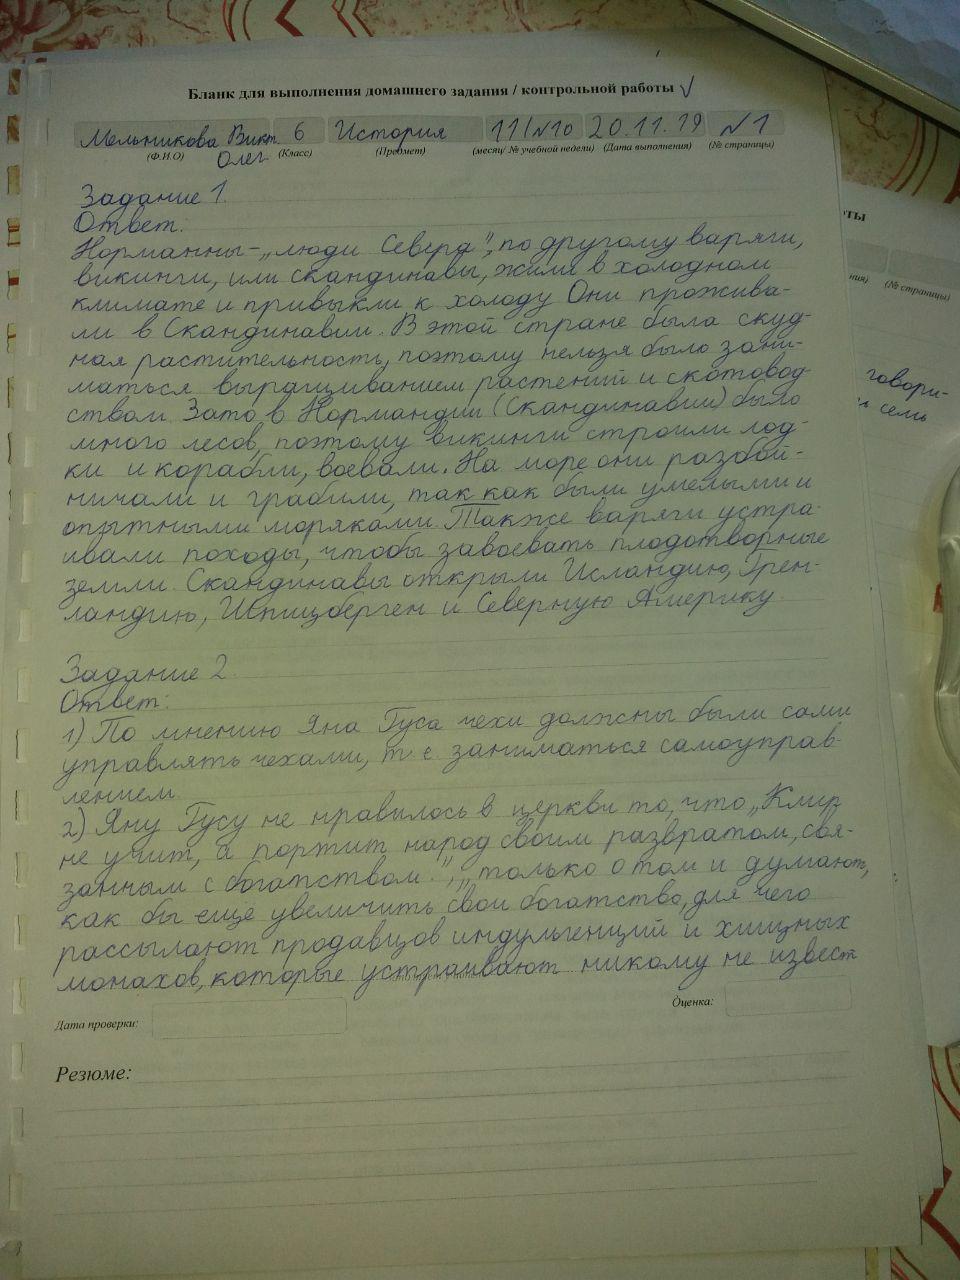 Бланк для выполнения домашнего задания / контрольной работы √
Мельникова Викт. 6 История 11/№10 20.11.19 №1
Олег.
(Ф.И.О) (Класс) (Предмет) (месяц/ № учебной недели) (Дата выполнения) (№ страницы)
Задание 1.
Ответ:
Норманны – „люди Севера", по другому варяги,
викинги, или скандинавы, жили в холодном
климате и привыкли к холоду Они прожива-
ли в Скандинавии. В этой стране была скуд-
ная растительность, поэтому нельзя было зани-
маться выращиванием растений и скотовод-
ством. Зато в Нормандии (Скандинавии) было
много лесов, поэтому викинги строили лод-
ки и корабли, воевали. На море они разбой-
ничали и грабили, так как были умелыми и
опытными моряками. Также варяги устра-
ивали походы, чтобы завоевать плодотворные
земли. Скандинавы открыли Исландию, Грен-
ландию, Шпицберген и Северную Америку.
Задание 2.
Ответ:
1) По мнению Яна Гуса чехи должны были сами
управлять чехами, т. е. заниматься самоуправ-
лением.
2) Яну Гусу не нравилось в церкви то, что „Клир
не учит, а портит народ своим развратом, свя-
занным с богатством.", „только о том и думают,
как бы ещё увеличить свои богатства, для чего
рассылают продавцов индульгенций и хищных
монахов, которые устраивают никому не извест
Дата проверки: Оценка:
Резюме:
ты
ния) (№ страницы)
говори-
семь